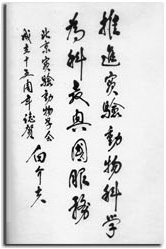 推進实驗動物科学
為科教興國服務
北京实驗動物学会
成立十五周年誌賀
向介夫